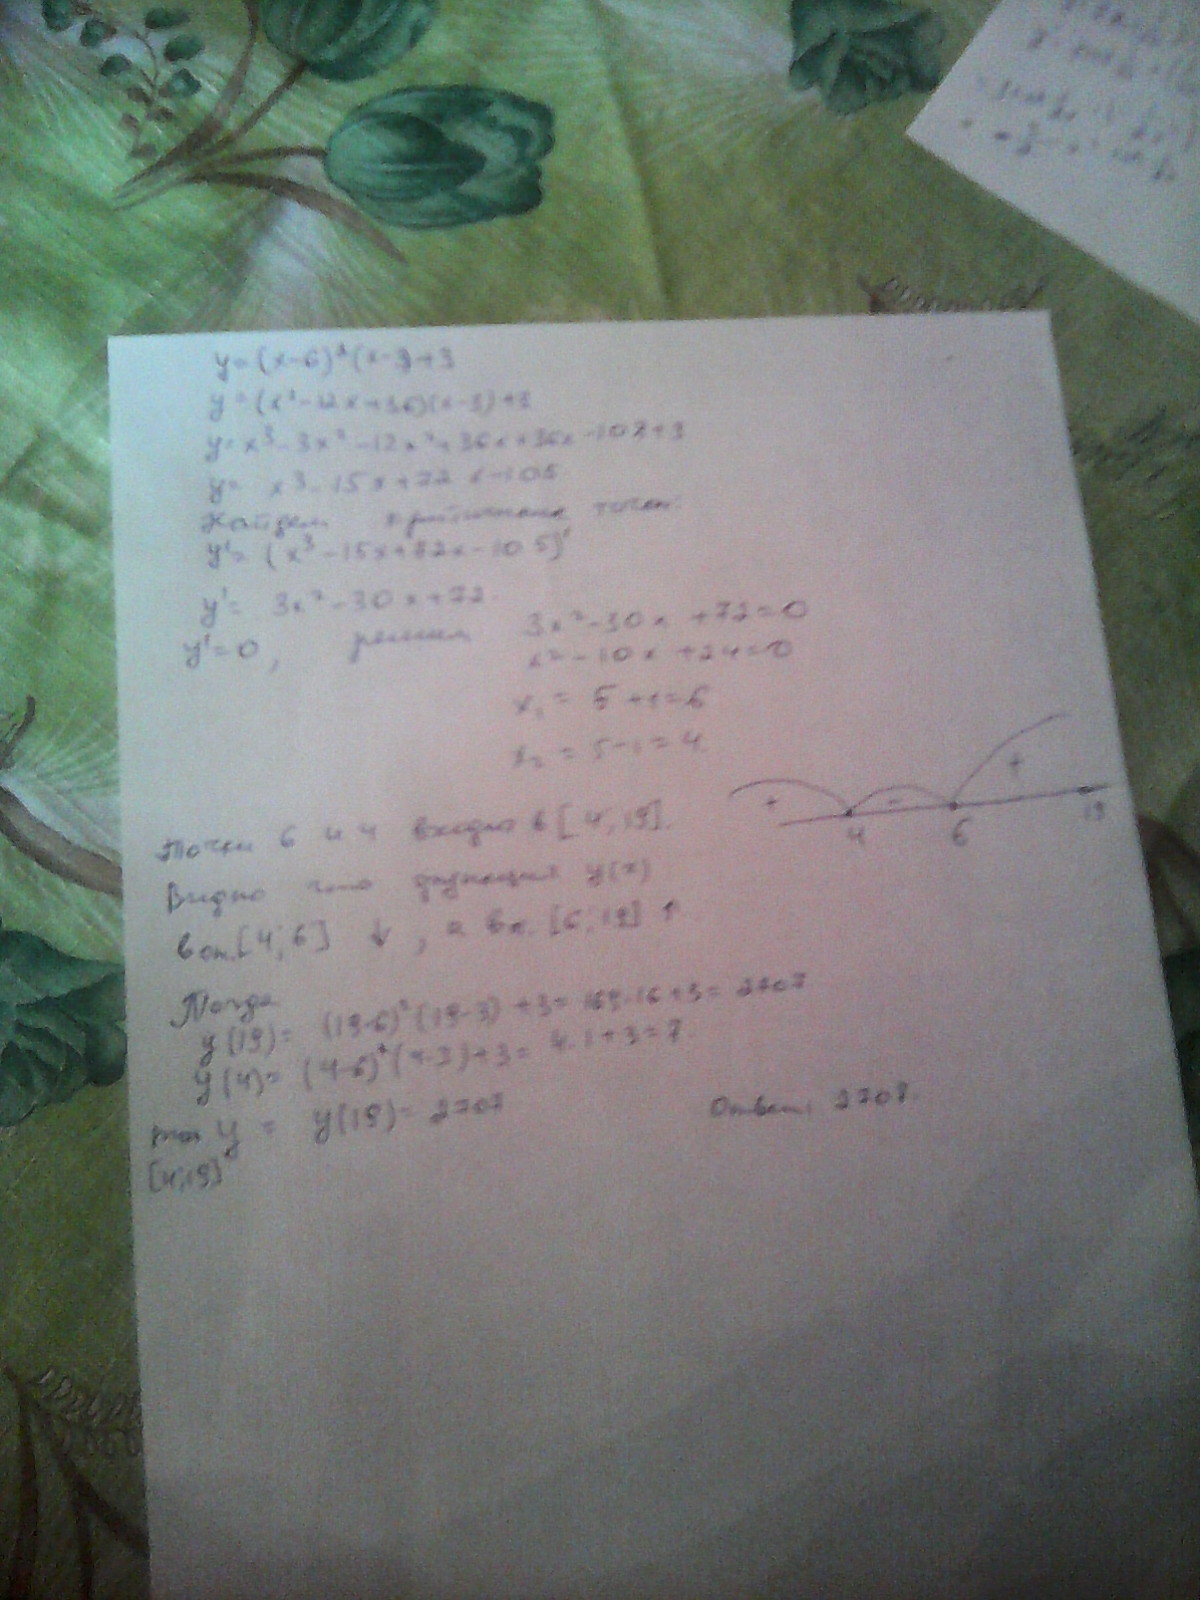 y=(x-6)²(x-3)+3
y=(x²-12x+36)(x-3)+3
y=x³-3x²-12x²+36x+36x-108+3
y= x³-15x+72x-105
Найдем критические точки:
y'=(x³-15x+72x-105)'
y'= 3x²-30x+72
y'=0, решим 3x²-30x+72=0
x²-10x+24=0
x₁= 5+1=6
x₂=5-1=4
+ - +
4 6 19
Точки 6 и 4 входят в [4;19].
Видно что функция y(x)
в от.[4;6] ↓, а в от. [6;19] ↑
Тогда
y(19)= (19-6)²(19-3)+3=169·16+3=2707
y(4)= (4-6)²(4-3)+3= 4·1+3=7.
max y = y(19)=2707
[4;19]
Ответ: 2707.